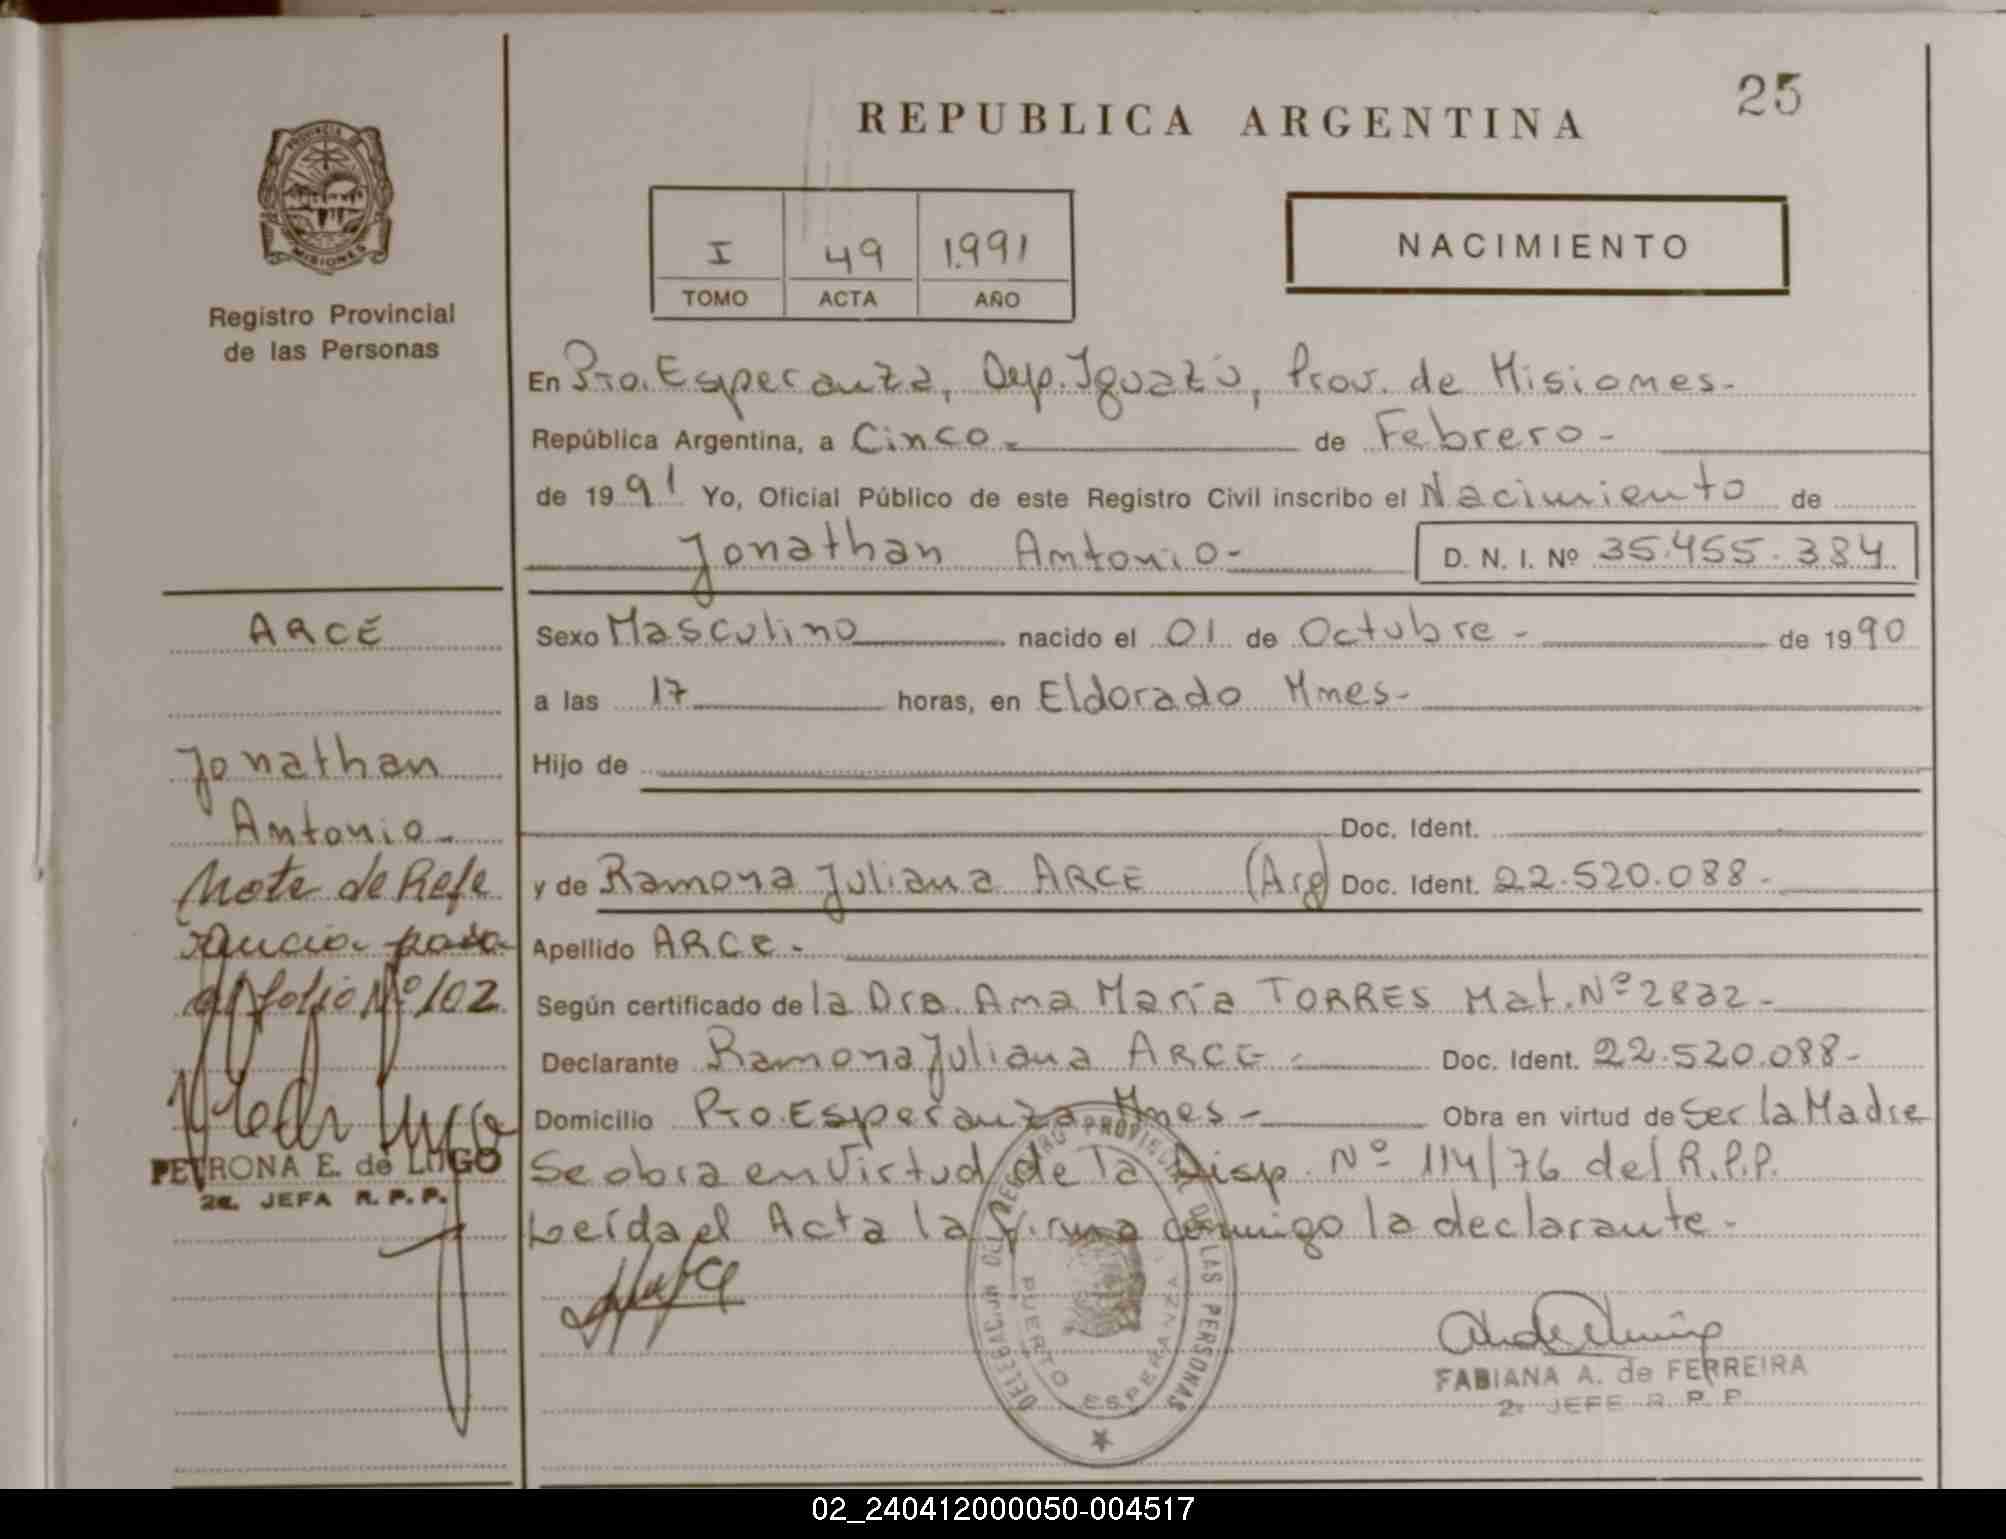 25
REPUBLICA ARGENTINA
PROVINCIA DE
MISIONES
Registro Provincial
de las Personas
I 49 1.991
TOMO ACTA AÑO
NACIMIENTO
En Pto. Esperanza, Dep. Iguazú, Prov. de Misiones.-
República Argentina, a Cinco.- de Febrero -
de 1991 Yo, Oficial Público de este Registro Civil inscribo el Nacimiento de
Jonathan Antonio- D. N. I. Nº 35.455.384
Sexo Masculino nacido el 01 de Octubre - de 1990
a las 17 horas, en Eldorado Mnes-
Hijo de
Doc. Ident.
y de Ramona Juliana ARCE (Arg) Doc. Ident. 22.520.088-
Apellido ARCE-
Según certificado de la Dra. Ana María TORRES Mat. Nº 2832-
Declarante Ramona Juliana ARCE - Doc. Ident. 22.520.088-
Domicilio Pto. Esperanza Mnes - Obra en virtud de Ser la Madre
Se obra en Virtud de la Disp. Nº 114/76 del R.P.P.
Leída el Acta la firma conmigo la declarante-
ARCE
Jonathan
Antonio-
Nota de Refe
rencia pasa
al folio Nº 102
PETRONA E. de LUGO
2a. JEFA R. P. P.
DELEGACION DEL REGISTRO PROVINCIAL DE LAS PERSONAS
PUERTO ESPERANZA
FABIANA A. de FERREIRA
2º JEFE R. P. P.
02_240412000050-004517